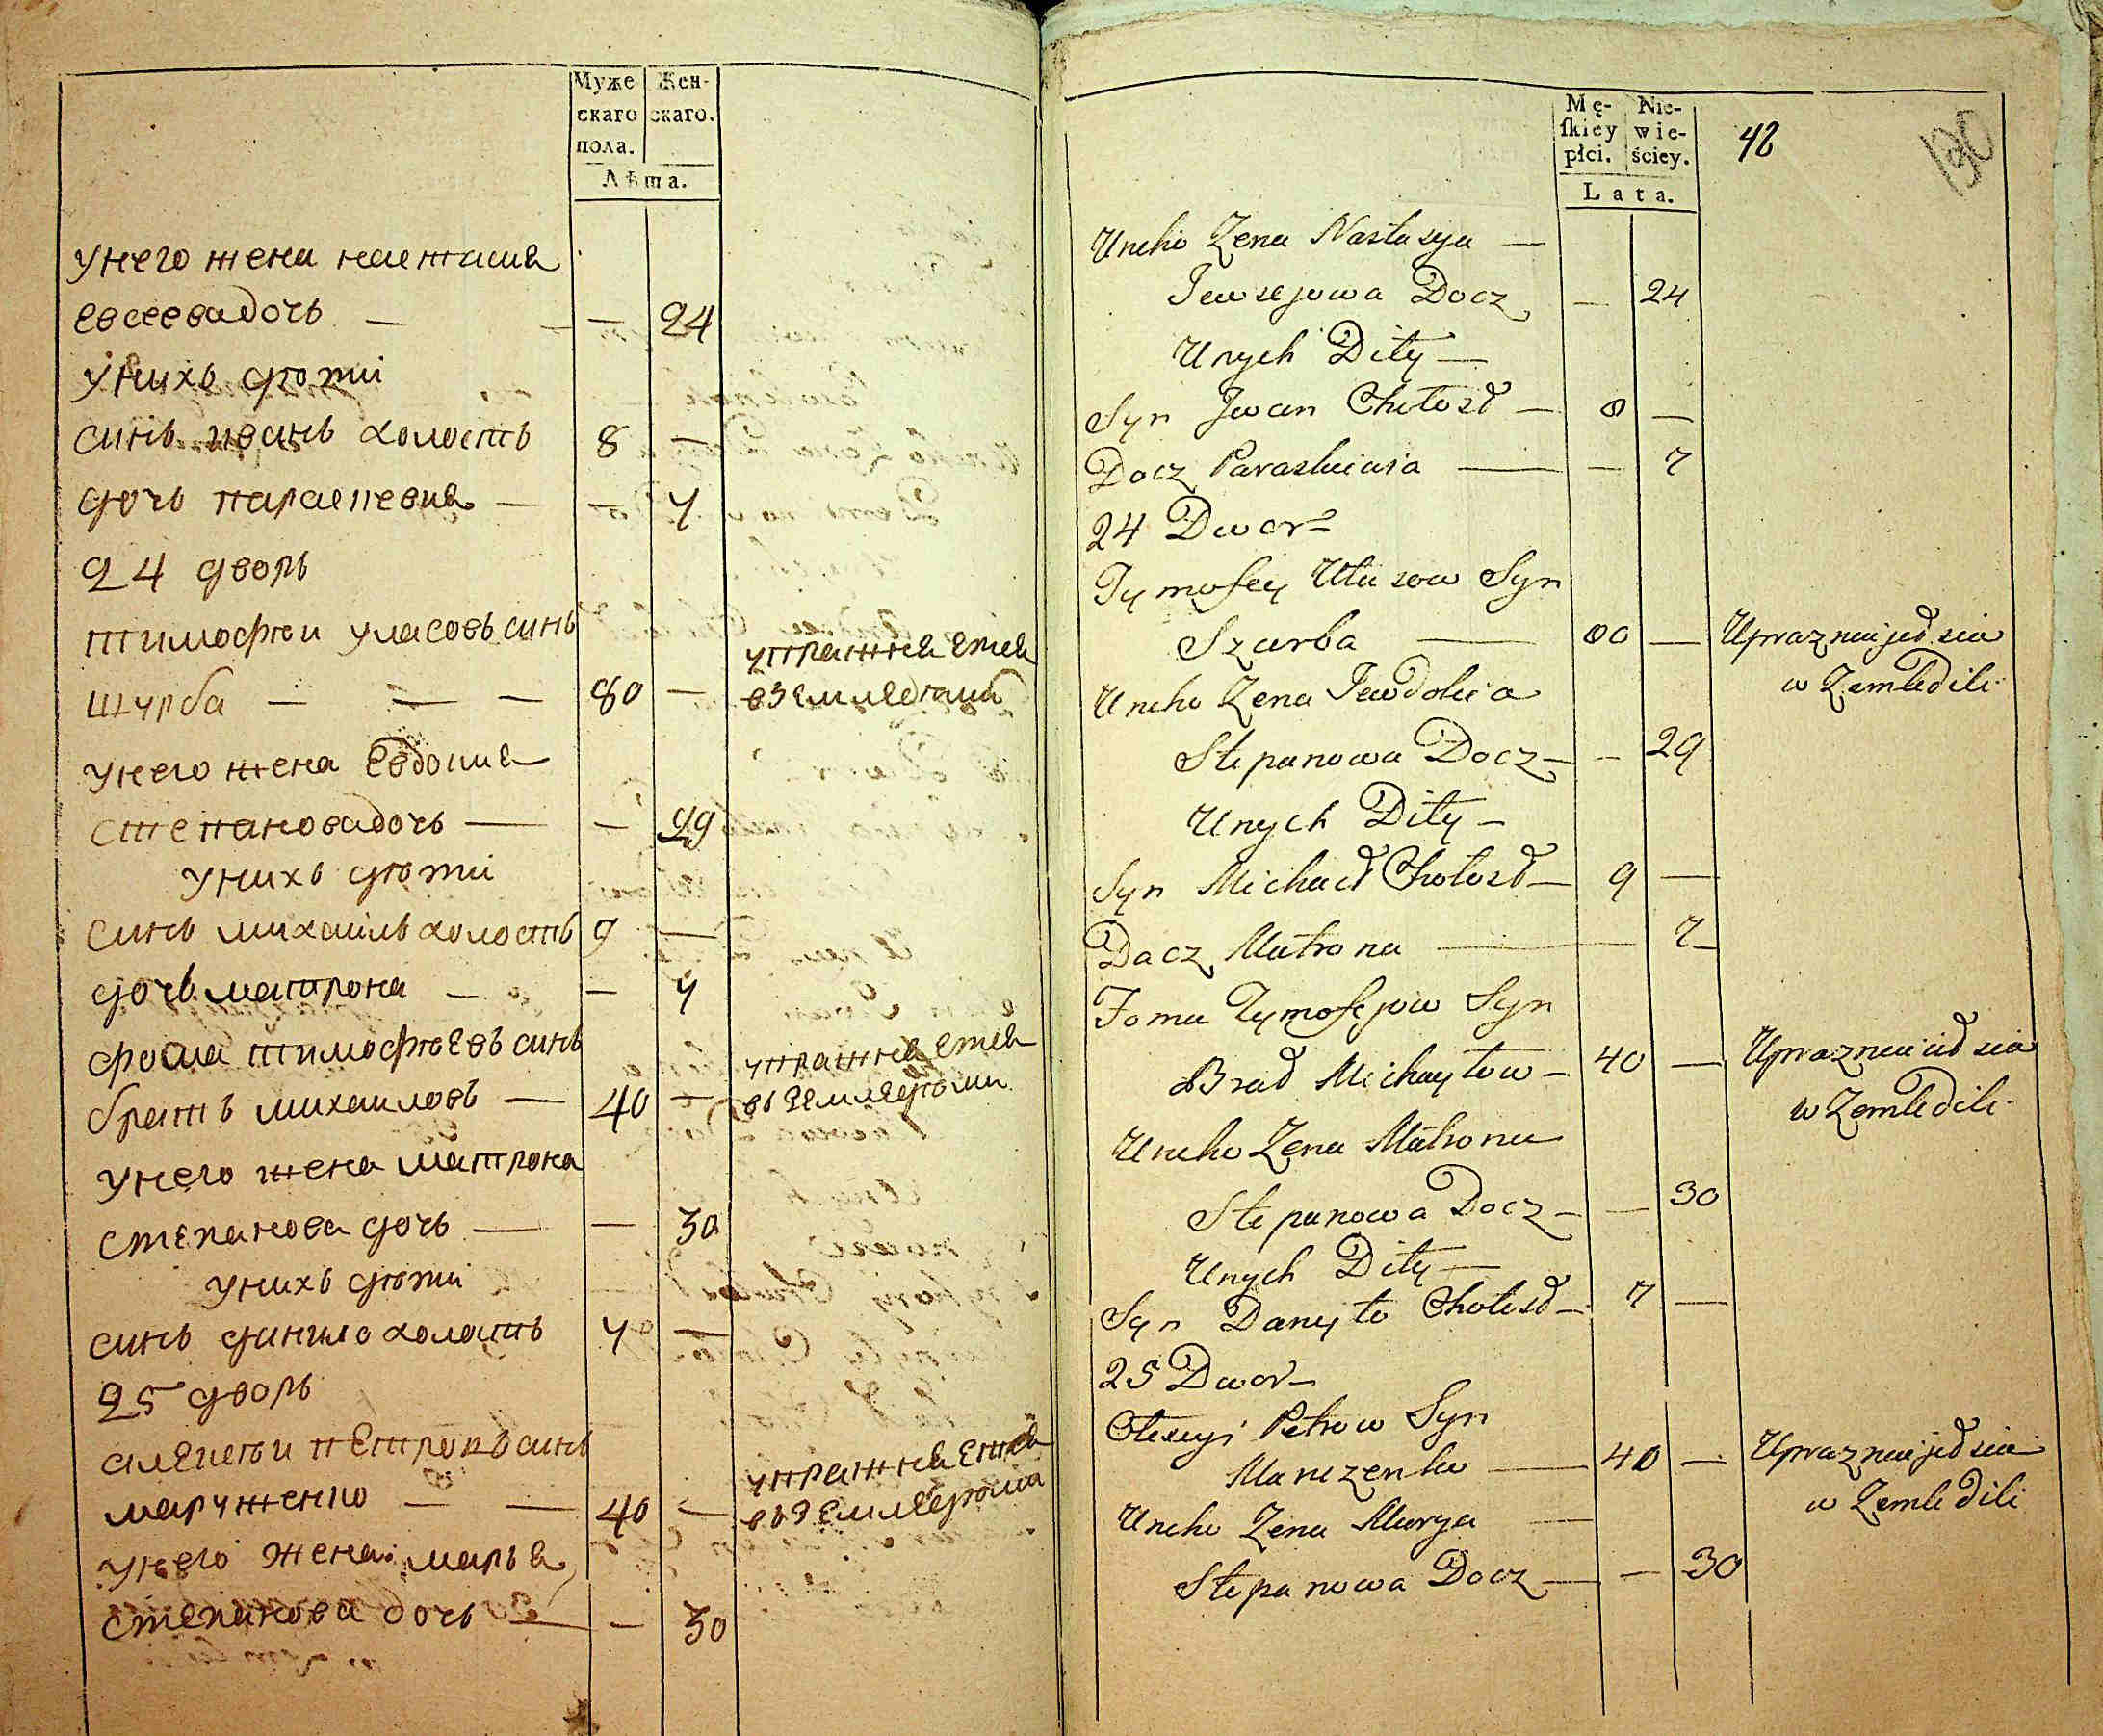 Муже
скаго
пола.
Жен-
скаго.
Лѣта.
унего жена настасия
евсеевадочь — — — 24
унихъ дѣти
синъ иванъ холостъ 8 —
дочь параскевия — — 7
24 дворъ
тимофѣи уласовъ синъ
щурба — — — 80 — упражняется
вземледѣлии
унего жена Евдокия
степановадочь — — 29
унихъ дѣти
синъ михаилъ холостъ 9 —
дочь матрона — — 7
фома тимофѣевъ синъ
братъ михаиловъ — 40 — упражняется
въ земледѣлии
унего жена матрона
степанова дочь — — 30
унихъ дѣти
синъ данило холостъ 7 —
25 дворъ
алексѣи петровъ синъ
— — 40 — упражняется
въ земледѣлии
унего жена марья
степанова дочь — — 30
Mę-
ſkiey
płci.
Nie-
wie-
ściey.
Lata.
42
190
Uneho Żena Nastasya —
Jewsejowa Docz — 24
Unych Dity —
Syn Jwan Chołost — 8 —
Docz Paraskiewia — — 7
24 Dwor —
Tymofey Ułasow Syn
Szurba — 80 — Uprazniajetsia
w Zemledili
Uneho Żena Jewdokia
Stepanowa Docz — — 29
Unych Dity —
Syn Michaił Chołost — 9 —
Docz Matrona — 7 —
Foma Tymofejow Syn
Brat Michayłow — 40 — Uprazniaietsia
w Zemledili
Uneho Żena Matrona
Stepanowa Docz — — 30
Unych Dity —
Syn Danyło Chołost — 7 —
25 Dwor —
Ołexyj Petrow Syn
— 40 — Uprazniajetsia
w Zemledili
Uneho Żena Marya —
Stepanowa Docz — — 30